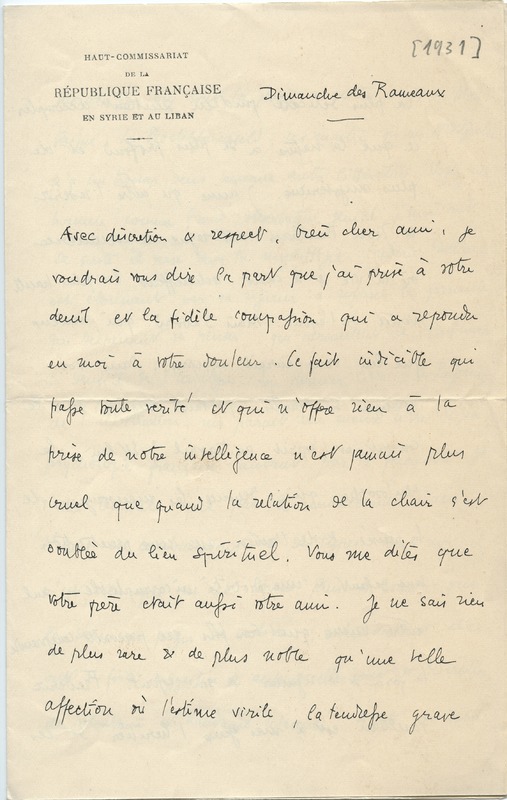 HAUT-COMMISSARIAT
DE LA
RÉPUBLIQUE FRANÇAISE
EN SYRIE ET AU LIBAN
[1931]
Dimanche des Rameaux
Avec discrétion & respect, bien cher ami, je
voudrais vous dire la part que j'ai prise à votre
deuil et la fidèle compassion qui a répondu
en moi à votre douleur. Ce fait indicible qui
passe toute vérité et qui n'offre rien à la
prise de notre intelligence n'est jamais plus
cruel que quand la relation de la chair s'est
doublée du lien spirituel. Vous me dites que
votre père était aussi votre ami. Je ne sais rien
de plus rare & de plus noble qu'une telle
affection où l'estime virile, la tendresse grave